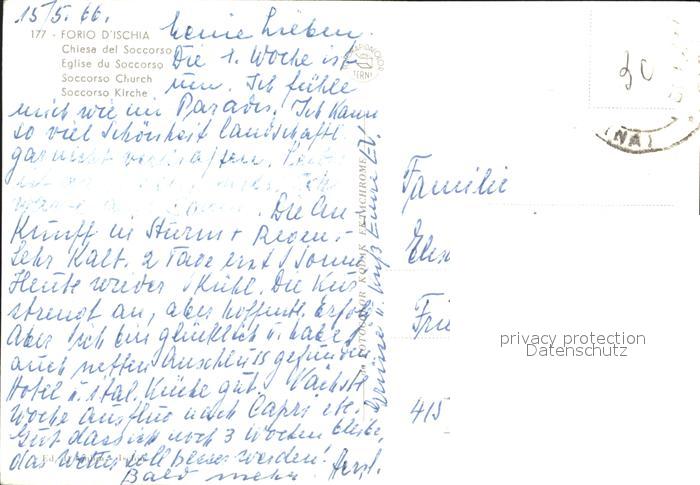 15/5. 66.
177 - FORIO D'ISCHIA
Chiesa del Soccorso
Eglise du Soccorso
Soccorso Church
Soccorso Kirche
Meine Lieben.
Die 1. Woche ist
um. Ich fühle
mich wie im Paradis. Ich kann
so viel Schönheit landschaftl.
gar nicht
Die An-
kunft in Sturm + Regen.
Sehr kalt. 2 Tage erst Sonne
Heute wieder kühl. Die Kur
strengt an, aber hoffentl. Erfolg
Aber ich bin glücklich u. habe
auch netten Anschluss gefunden.
Hotel u. ital. Küche gut. Nächste
Woche Ausflug nach Capri etc.
Gut dass ich noch 3 Wochen bleibe,
das Wetter soll besser werden!
Bald mehr. Herzl.
Grüße u. Kuß Eure
KODAK EKTACHROME
30
Familie
Frie
415
privacy protection
Datenschutz